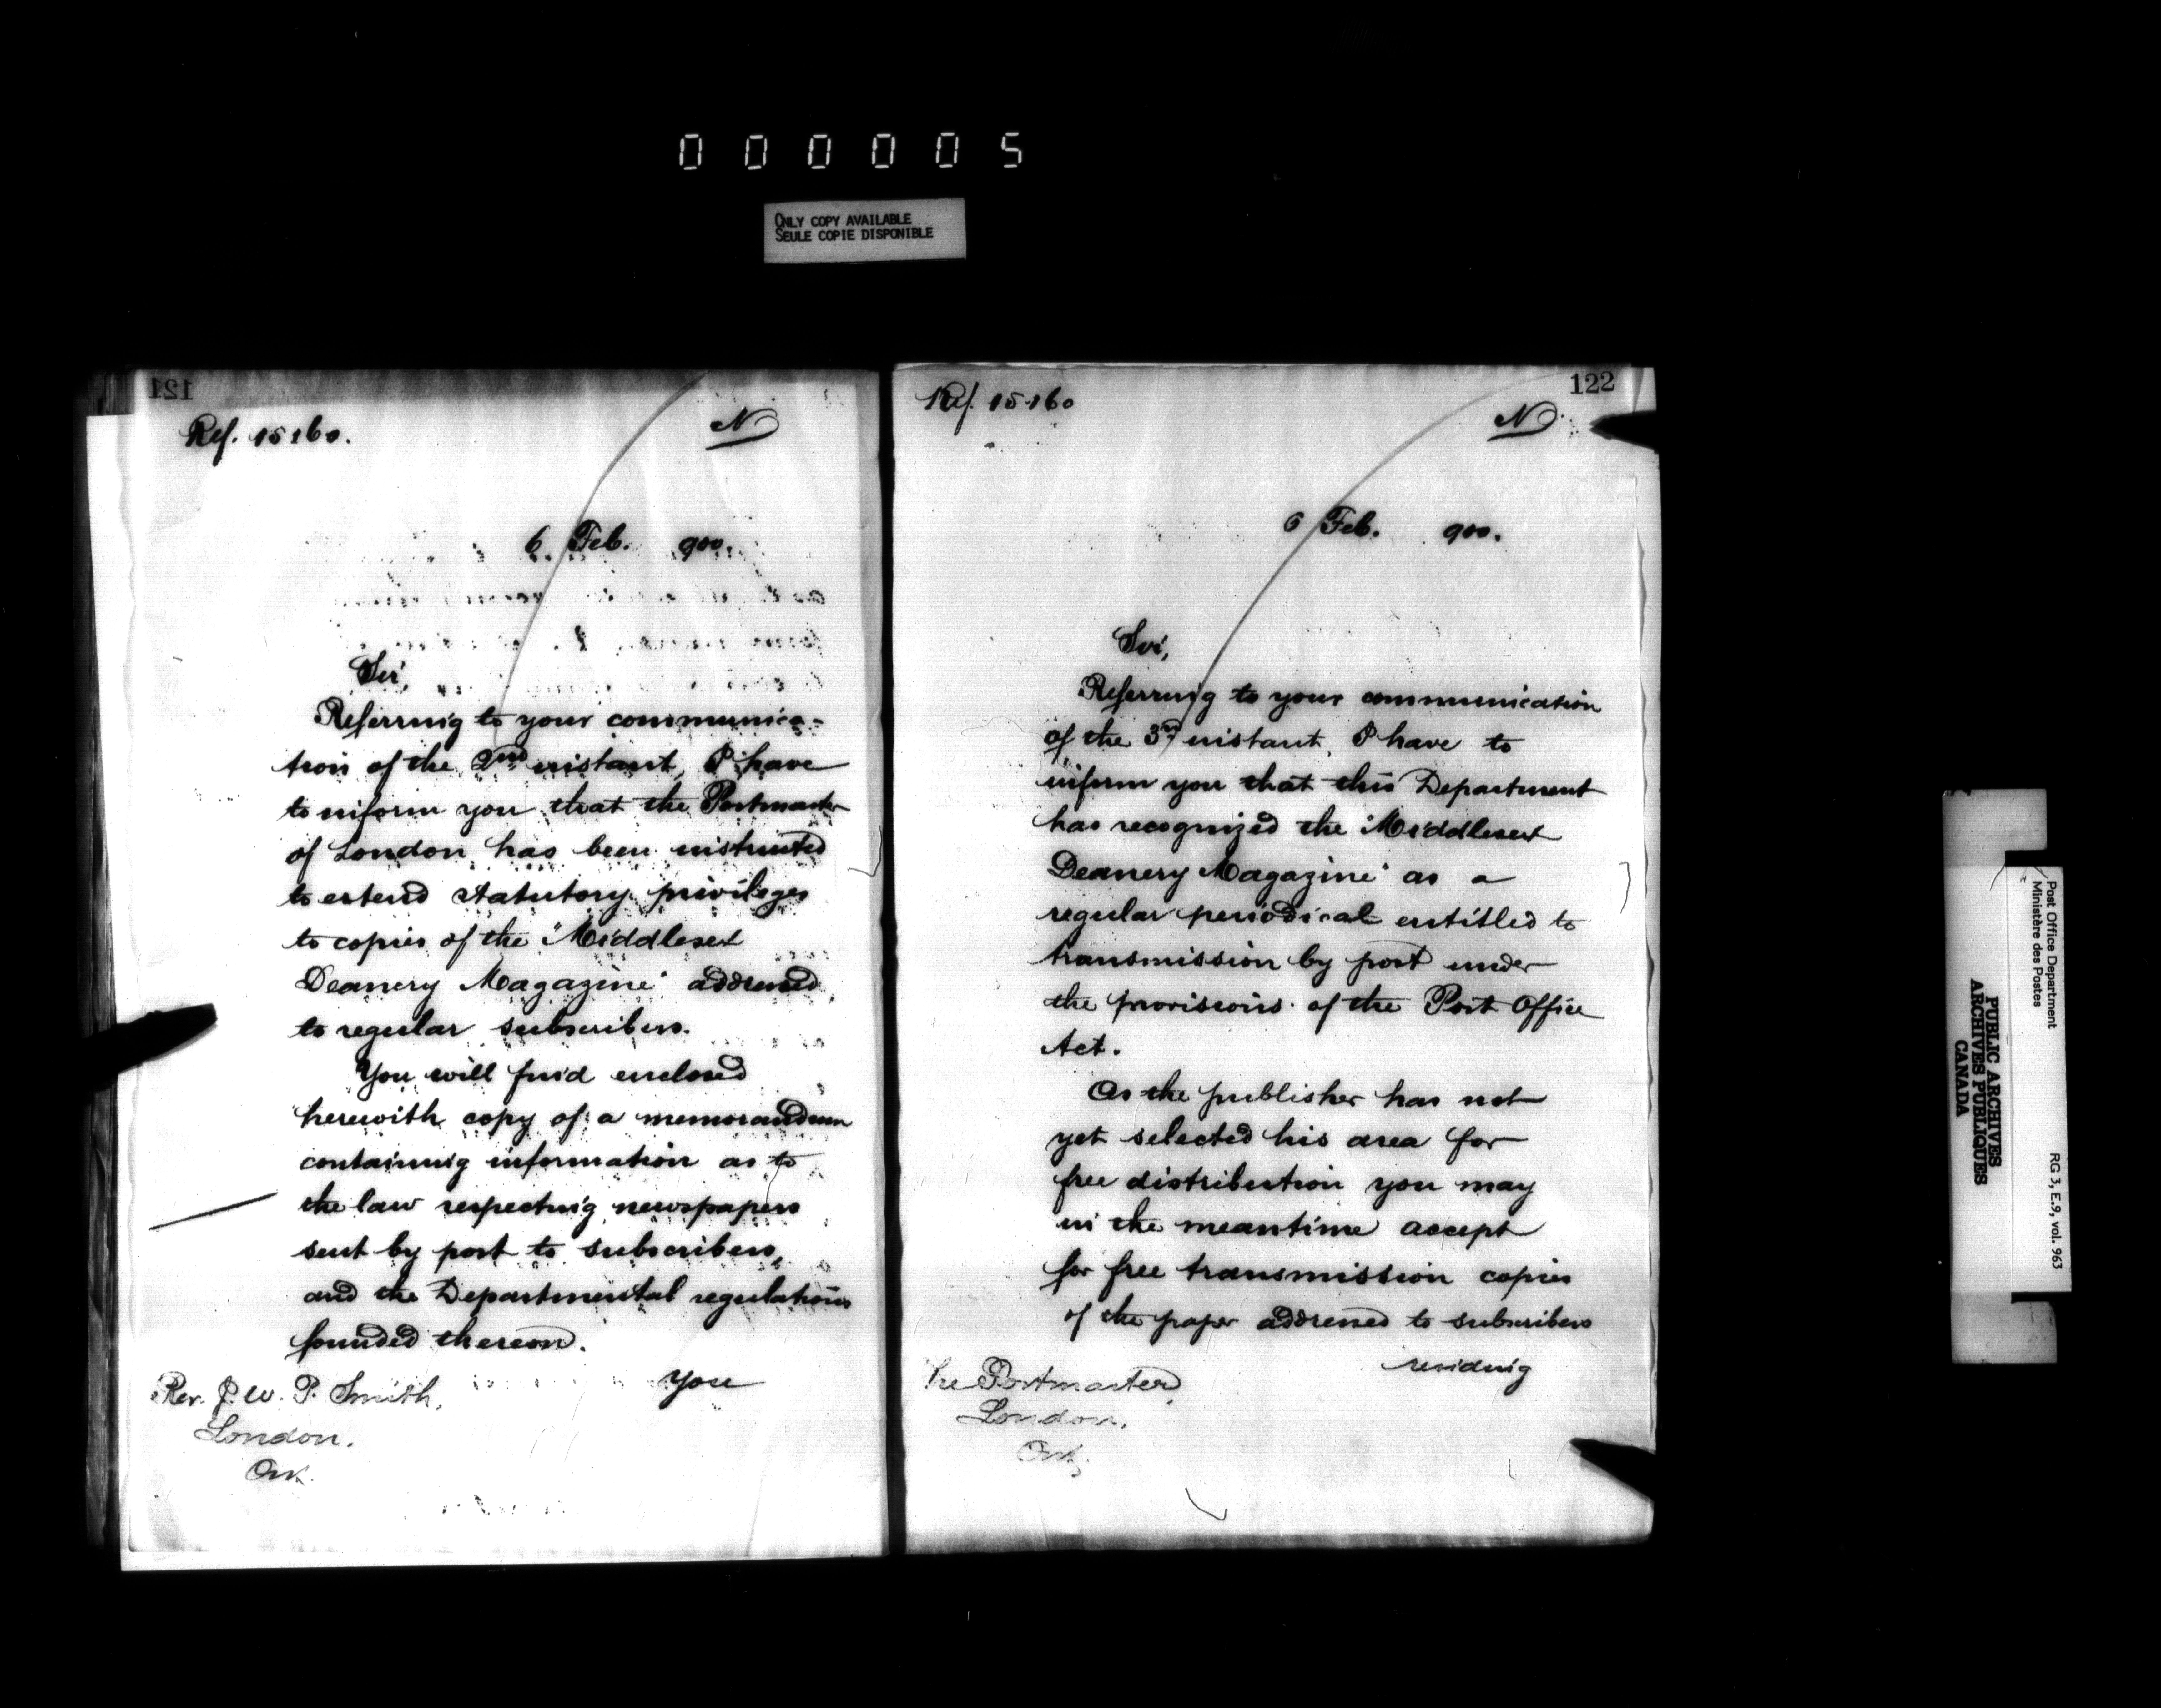 000005
ONLY COPY AVAILABLE
SEULE COPIE DISPONIBLE
121
Ref. 15160.
N
6 Feb. 900.
Sir,
Referring to your communica-
tion of the 2nd instant, I have
to inform you that the Postmaster
of London has been instructed
to extend statutory privileges
to copies of the "Middlesex
Deanery Magazine" addressed
to regular subscribers.
You will find enclosed
herewith copy of a memorandum
containing information as to
the law respecting newspapers
sent by post to subscribers,
and the Departmental regulations
founded thereon.
You
Rev. J. W. P. Smith,
London.
Ont.
122
Ref. 15160
N
6 Feb. 900.
Sir,
Referring to your communication
of the 3rd instant, I have to
inform you that this Department
has recognized the "Middlesex
Deanery Magazine" as a
regular periodical entitled to
transmission by post under
the provisions of the Post Office
Act.
As the publisher has not
yet selected his area for
free distribution you may
in the meantime accept
for free transmission copies
of the paper addressed to subscribers
residing
The Postmaster,
London,
Ont.
Post Office Department
Ministère des Postes
RG 3, E.9, vol. 963
PUBLIC ARCHIVES
ARCHIVES PUBLIQUES
CANADA